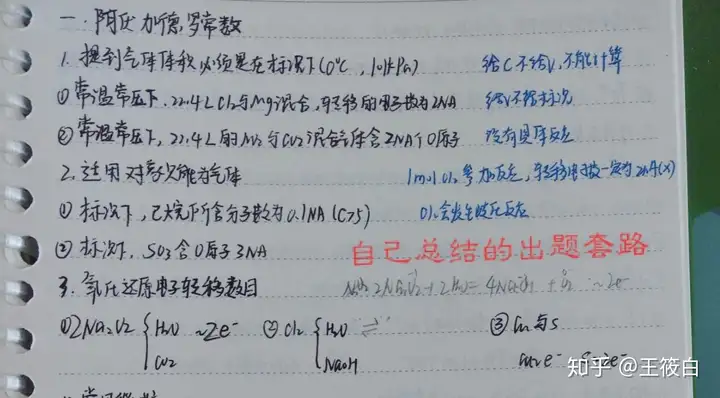 一.阿伏加德罗常数
1.提到气体体积必须是在标况下(0℃, 101kPa) 给C不给V,不能计算
①常温常压下,22.4L Cl2与Mg混合,转移的电子数为2NA 给V不标况
②常温常压下,22.4L的NO2与CO2混合气体含2NA个O原子 没有具体反应
2.适用对象只能为气体 1mol Cl2参加反应,转移电子数一定为2NA(X)
①标况下,己烷所含分子数为0.1NA (C>5) Cl2会发生歧化反应
②标况下,SO3含O原子3NA 自己总结的出题套路
3.氧化还原电子转移数目 2Na2O2+2H2O=4NaOH+O2 ~2e-
①2Na2O2 { H2O ~2e- ②Cl2 { H2O ⇌ ③Cu与S
CO2 NaOH Cu2e- S2e-
知乎 @王筱白